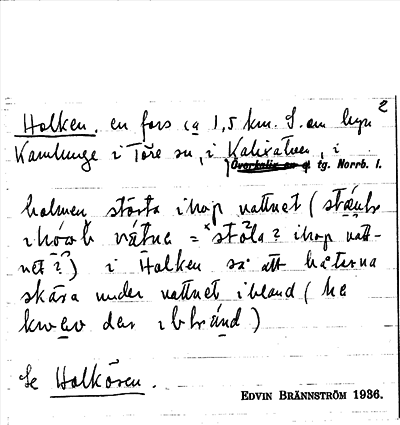 2
Holken, en fors ca 1,5 km. S. om byn
Kamlunge i Töre sn, i Kalixälven, i
Överkalix sn o tg. Norrb. l.
holmen störta ihop vattnet (
ihóob vátnə = *stöla? ihop vatt-
net?) i Holken så att båtarna
skära under vattnet ibland (
den ibbránd)
Se Holkören.
EDVIN BRÄNNSTRÖM 1936.